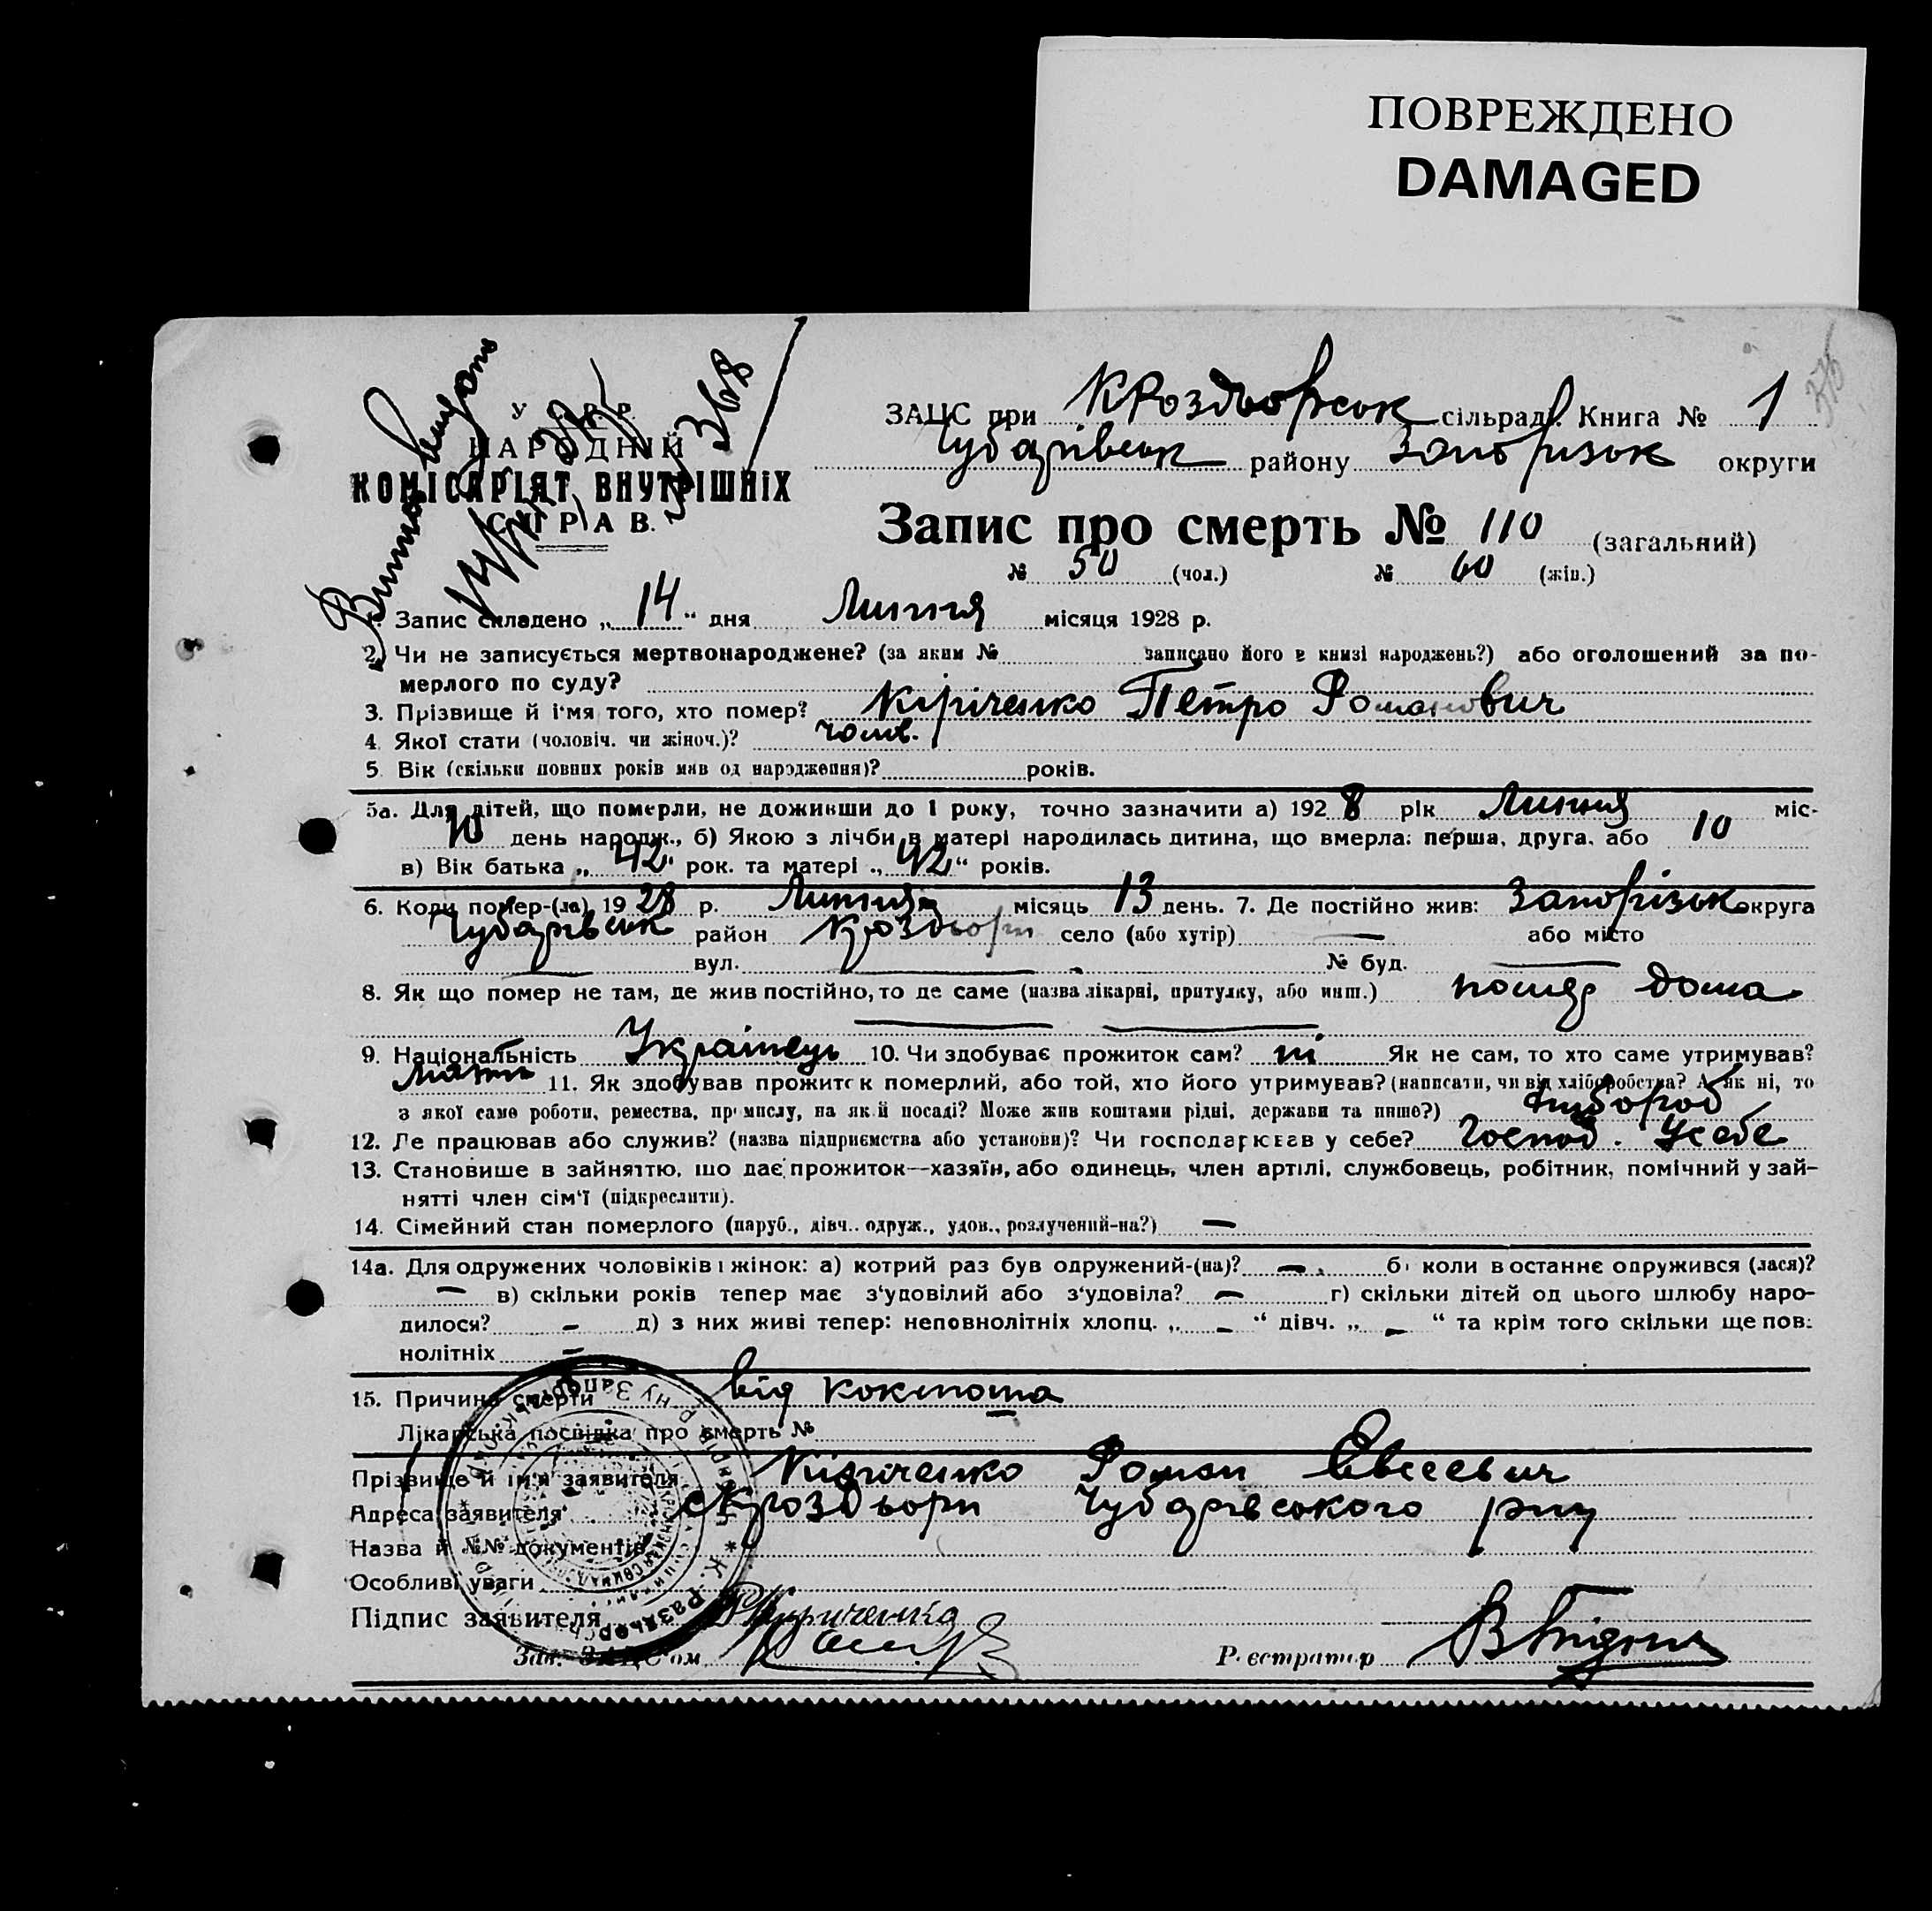 ПОВРЕЖДЕНО
DAMAGED
У. С. Р. Р.
НАРОДНІЙ
КОМІСАРІЯТ ВНУТРІШНІХ
СПРАВ.
368
ЗАЦС при КРоздьорськ сільраді. Книга № 1
Чубарівськ району Запоризьк округи
Запис про смерть № 110 (загальний)
№ 50 (чол.) № 60 (жін.)
1. Запис складено „ 14 “ дня Липня місяця 1928 р.
2. Чи не записується мертвонароджене? (за яким № записано його в книзі народжень?) або оголошений за по-
мерлого по суду?
3. Прізвище й імя того, хто помер? Кіріченко Петро Романович
4. Якої стати (чоловіч. чи жіноч.)? чолв.
5. Вік (скільки повних років мав од народження)? років.
5а. Для дітей, що померли, не доживши до 1 року, точно зазначити а) 192 8 рік Липня міс-
10 день народж., б) Якою з лічби в матері народилась дитина, що вмерла: перша, друга, або 10
в) Вік батька „ 42 “ рок. та матері „ 42 “ років.
6. Коли помер-(ла) 19 28 р. Липня місяць 13 день. 7. Де постійно жив: Запорізьк округа
Чубарівськ район Кроздьори село (або хутір) — або місто
— вул. — № буд. —
8. Як що помер не там, де жив постійно, то де саме (назва лікарні, притулку, або инш.) помер дома
9. Національність Українець 10. Чи здобуває прожиток сам? ні Як не сам, то хто саме утримував?
Мати 11. Як здобував прожиток померлий, або той, хто його утримував? (написати, чи від хліборобства? А як ні, то
з якої саме роботи, ремества, промислу, на якій посаді? Може жив коштами рідні, держави та инше?) хлібороб
12. Де працював або служив? (назва підприємства або установи)? Чи господарював у себе? Господ. Усебе
13. Становище в зайняттю, що дає прожиток—хазяїн, або одинець, член артілі, службовець, робітник, помічний у зай-
нятті член сім'ї (підкреслити).
14. Сімейний стан померлого (паруб., дівч.. одруж., удов., розлучений-на?) —
14а. Для одружених чоловіків і жінок: а) котрий раз був одружений-(на)? — б) коли востаннє одружився (лася)?
— в) скільки років тепер має з'удовілий або з'удовіла? — г) скільки дітей од цього шлюбу наро-
дилося? — д) з них живі тепер: неповнолітніх хлопц. „ — “ дівч. „ — “ та крім того скільки ще пов-
нолітніх —
15. Причина смерти від коклюша
Лікарська посвідка про смерть №
Прізвище й ім'я заявителя Кіріченко Роман Евсеевич
Адреса заявителя сКроздьори Чубарівського р-ну
Назва й №№ документів
Особливі уваги
Підпис заявителя РКириченко
Зав. ЗАЦС'ом
Реєстратор